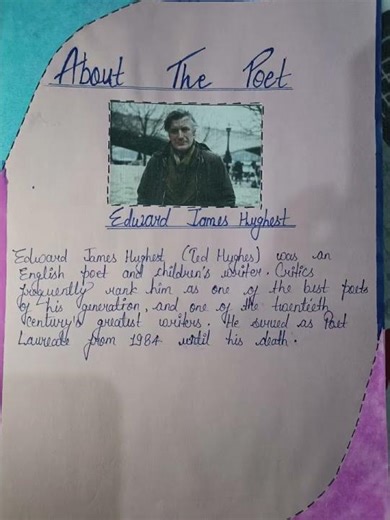 About The Poet
Edward James Hughest
Edward James Hughest (Ted Hughes) was an
English poet and children's writer. Critics
frequently rank him as one of the best poets
of his generation, and one of the twentieth
century's greatest writers. He served as Poet
Laureate from 1984 until his death.